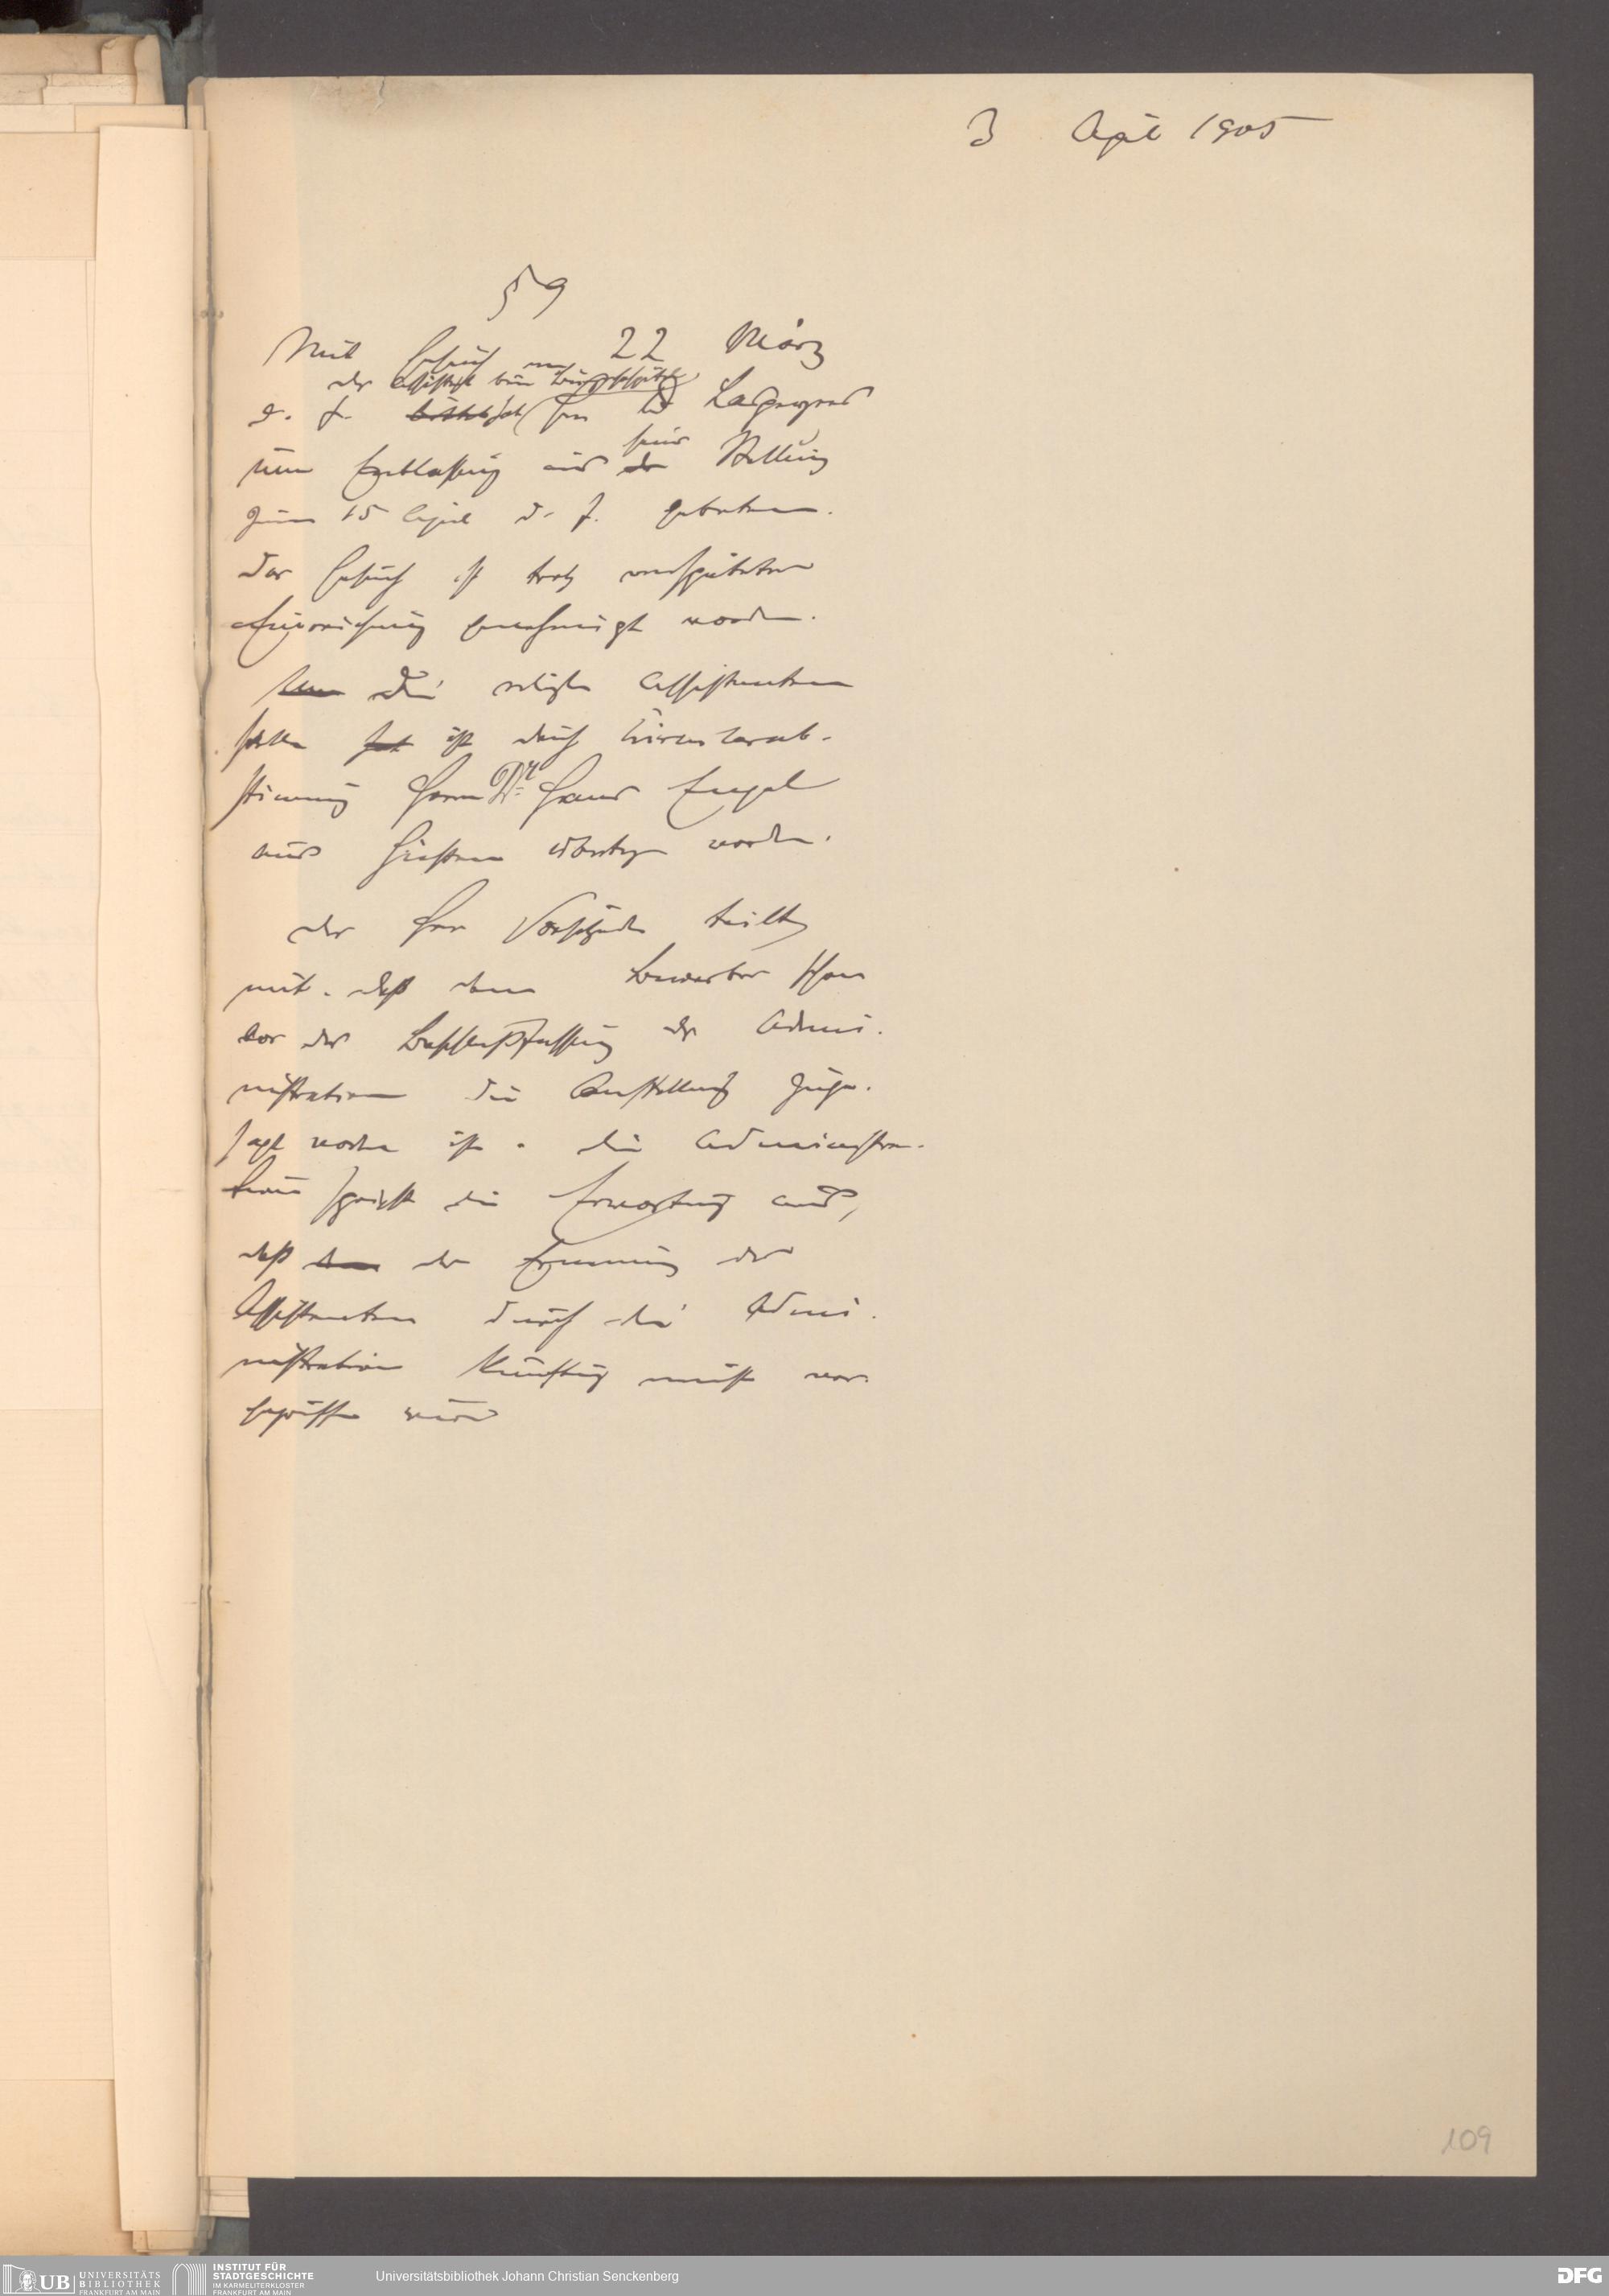 3 April 1905
59
Mit Gesuch vom 22 März
der Assistent beim Bürgerhospital
d. J. hat Herr
um Entlassung aus seiner Stellung
zum 15 April d. J. gebeten.
Das Gesuch ist trotz verspäteter
Einreichung genehmigt worden.
Die erledigte Assistenten
stelle ist durch Circularab-
stimmung Herrn Dr. Hans Engel
aus Gießen übertragen worden.
Der Herr Vorsitzende teilte
mit, daß dem Bewerber schon
vor der Beschlußfassung der Admi-
nistration die Anstellung zuge-
sagt worden ist. Die Administra-
tion spricht die Erwartung aus,
daß der Ernennung der
Assistenten durch die Admi-
nistration künftig nicht vor-
gegriffen wird
109
UB UNIVERSITÄTS BIBLIOTHEK FRANKFURT AM MAIN
INSTITUT FÜR STADTGESCHICHTE IM KARMELITERKLOSTER FRANKFURT AM MAIN
Universitätsbibliothek Johann Christian Senckenberg
DFG